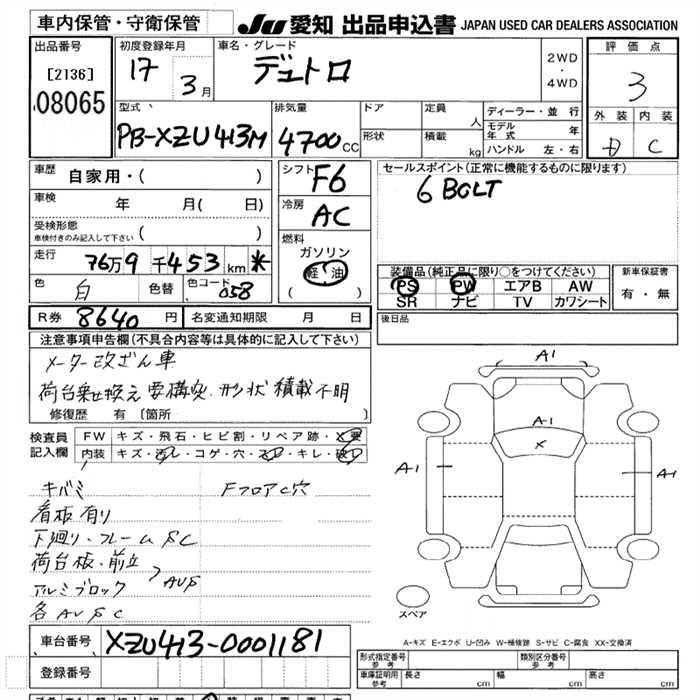 車内保管・守衛保管
JU 愛知 出品申込書 JAPAN USED CAR DEALERS ASSOCIATION
出品番号
[2136]
08065
初度登録年月
17 3月
車名・グレード
デュトロ
2WD
・
4WD
評価点
3
外装 内装
D C
型式
PB-XZU413M
排気量
4700 CC
ドア
形状
定員 人
積載 kg
ディーラー・並行
モデル年式 年
ハンドル 左・右
車歴
自家用・( )
車検 年 月( 日)
受検形態
車検付きのみ記入して下さい ( )
走行 76万9千453km *
色 白 色替 色コード 058
シフト F6
冷房 AC
燃料
ガソリン
軽油
( )
セールスポイント(正常に機能するものに限ります)
6 BOLT
装備品(純正品に限り○をつけてください)
PS PW エアB AW
SR ナビ TV カワシート
新車保証書
有・無
R券 8640 円 名変通知期限 月 日
後日品
注意事項申告欄(不具合内容等は具体的に記入して下さい)
メーター改ざん車
荷台乗せ換え 要構変. 形状 積載不明
修復歴 有 [箇所
検査員
記入欄
FW キズ・飛石・ヒビ割・リペア跡・X要
内装 キズ・汚レ・コゲ・穴・スレ・キレ・破レ
キバミ FフロアC穴
看板有り
下廻り・フレームSC
荷台板・前立
アルミブロック
AUS
各AUSC
A1
A1
X
A1
A1
スペア
A-キズ E-エクボ U-凹み W-補修跡 S-サビ C-腐食 XX-交換済
車台番号 XZU413-0001181
登録番号
形式指定番号
参考
類別区分番号
参考
車庫証明用
参考
長さ cm 幅 cm 高さ cm